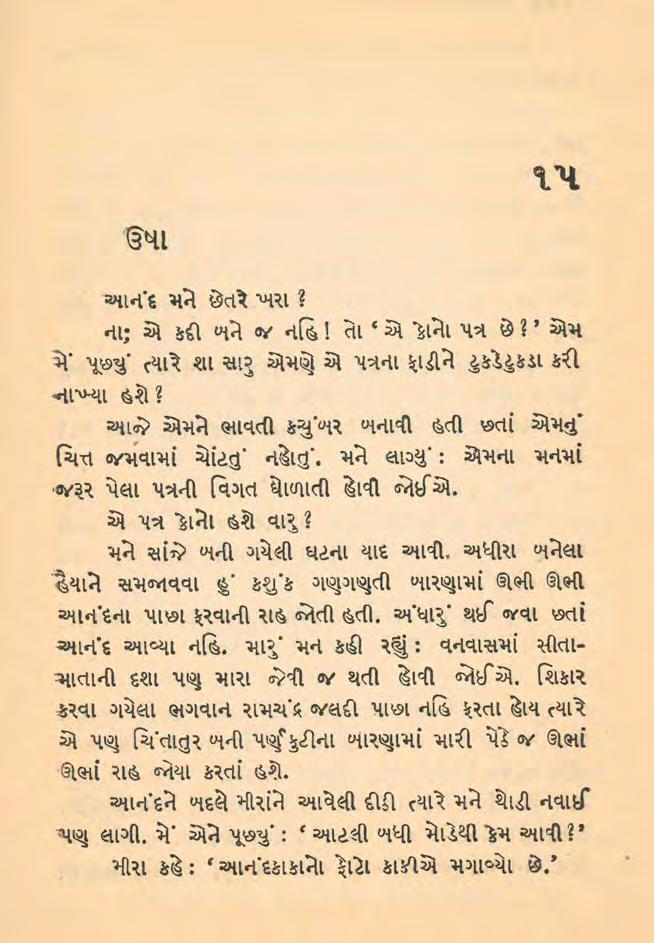 ૧૫
ઊષા
આનંદ મને છેતરે ખરા ?
ના; એ કદી બને જ નહિ! તો ‘ એ કોનો પત્ર છે?’ એમ
મેં પૂછ્યું ત્યારે શા સારુ એમણે એ પત્રના ફાડીને ટુકડેટુકડા કરી
નાખ્યા હશે?
આજે એમને ભાવતી કચુંબર બનાવી હતી છતાં એમનું
ચિત્ત જમવામાં ચોંટતું નહોતું. મને લાગ્યું : એમના મનમાં
જરૂર પેલા પત્રની વિગત ઘોળાતી હોવી જોઈએ.
એ પત્ર કોનો હશે વારુ?
મને સાંજે બની ગયેલી ઘટના યાદ આવી. અધીરા બનેલા
હૈયાને સમજાવવા હું કશુંક ગણગણતી બારણામાં ઊભી ઊભી
આનંદના પાછા ફરવાની રાહ જોતી હતી. અંધારું થઈ જવા છતાં
આનંદ આવ્યા નહિ. મારું મન કહી રહ્યું : વનવાસમાં સીતા-
માતાની દશા પણ મારા જેવી જ થતી હોવી જોઈએ. શિકાર
કરવા ગયેલા ભગવાન રામચંદ્ર જલદી પાછા નહિ ફરતા હોય ત્યારે
એ પણ ચિંતાતુર બની પર્ણકુટીના બારણામાં મારી પેઠે જ ઊભાં
ઊભાં રાહ જોયા કરતાં હશે.
આનંદને બદલે મીરાંને આવેલી દીઠી ત્યારે મને થોડી નવાઈ
પણ લાગી. મેં એને પૂછ્યું : ‘ આટલી બધી મોડેથી કેમ આવી?’
મીરા કહે : ‘આનંદકાકાનો ફોટો કાકીએ મગાવ્યો છે.’